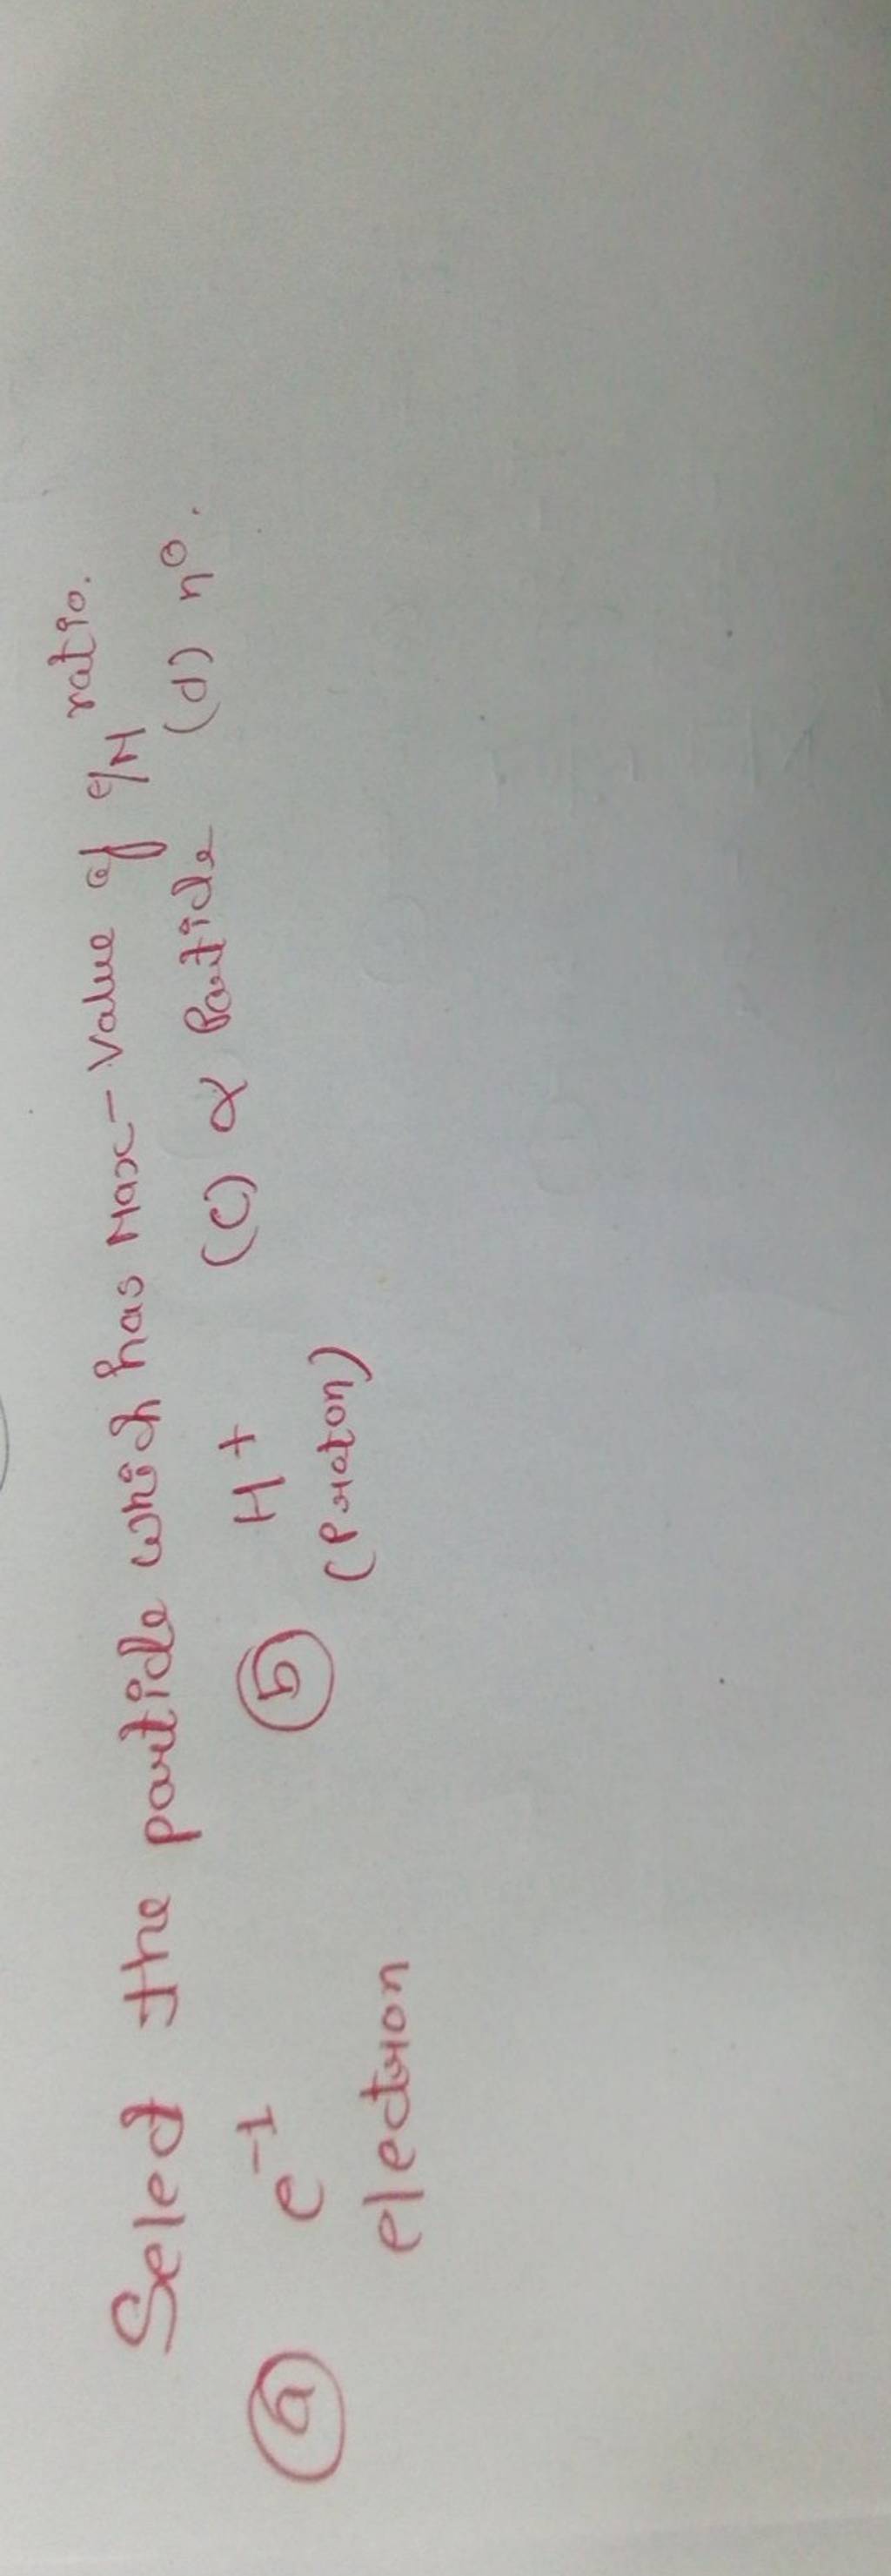 Select the particle which has Max-Value of e/M ratio.
(a) e⁻¹ (b) H⁺ (c) α Particle (d) n⁰.
electron (Proton)